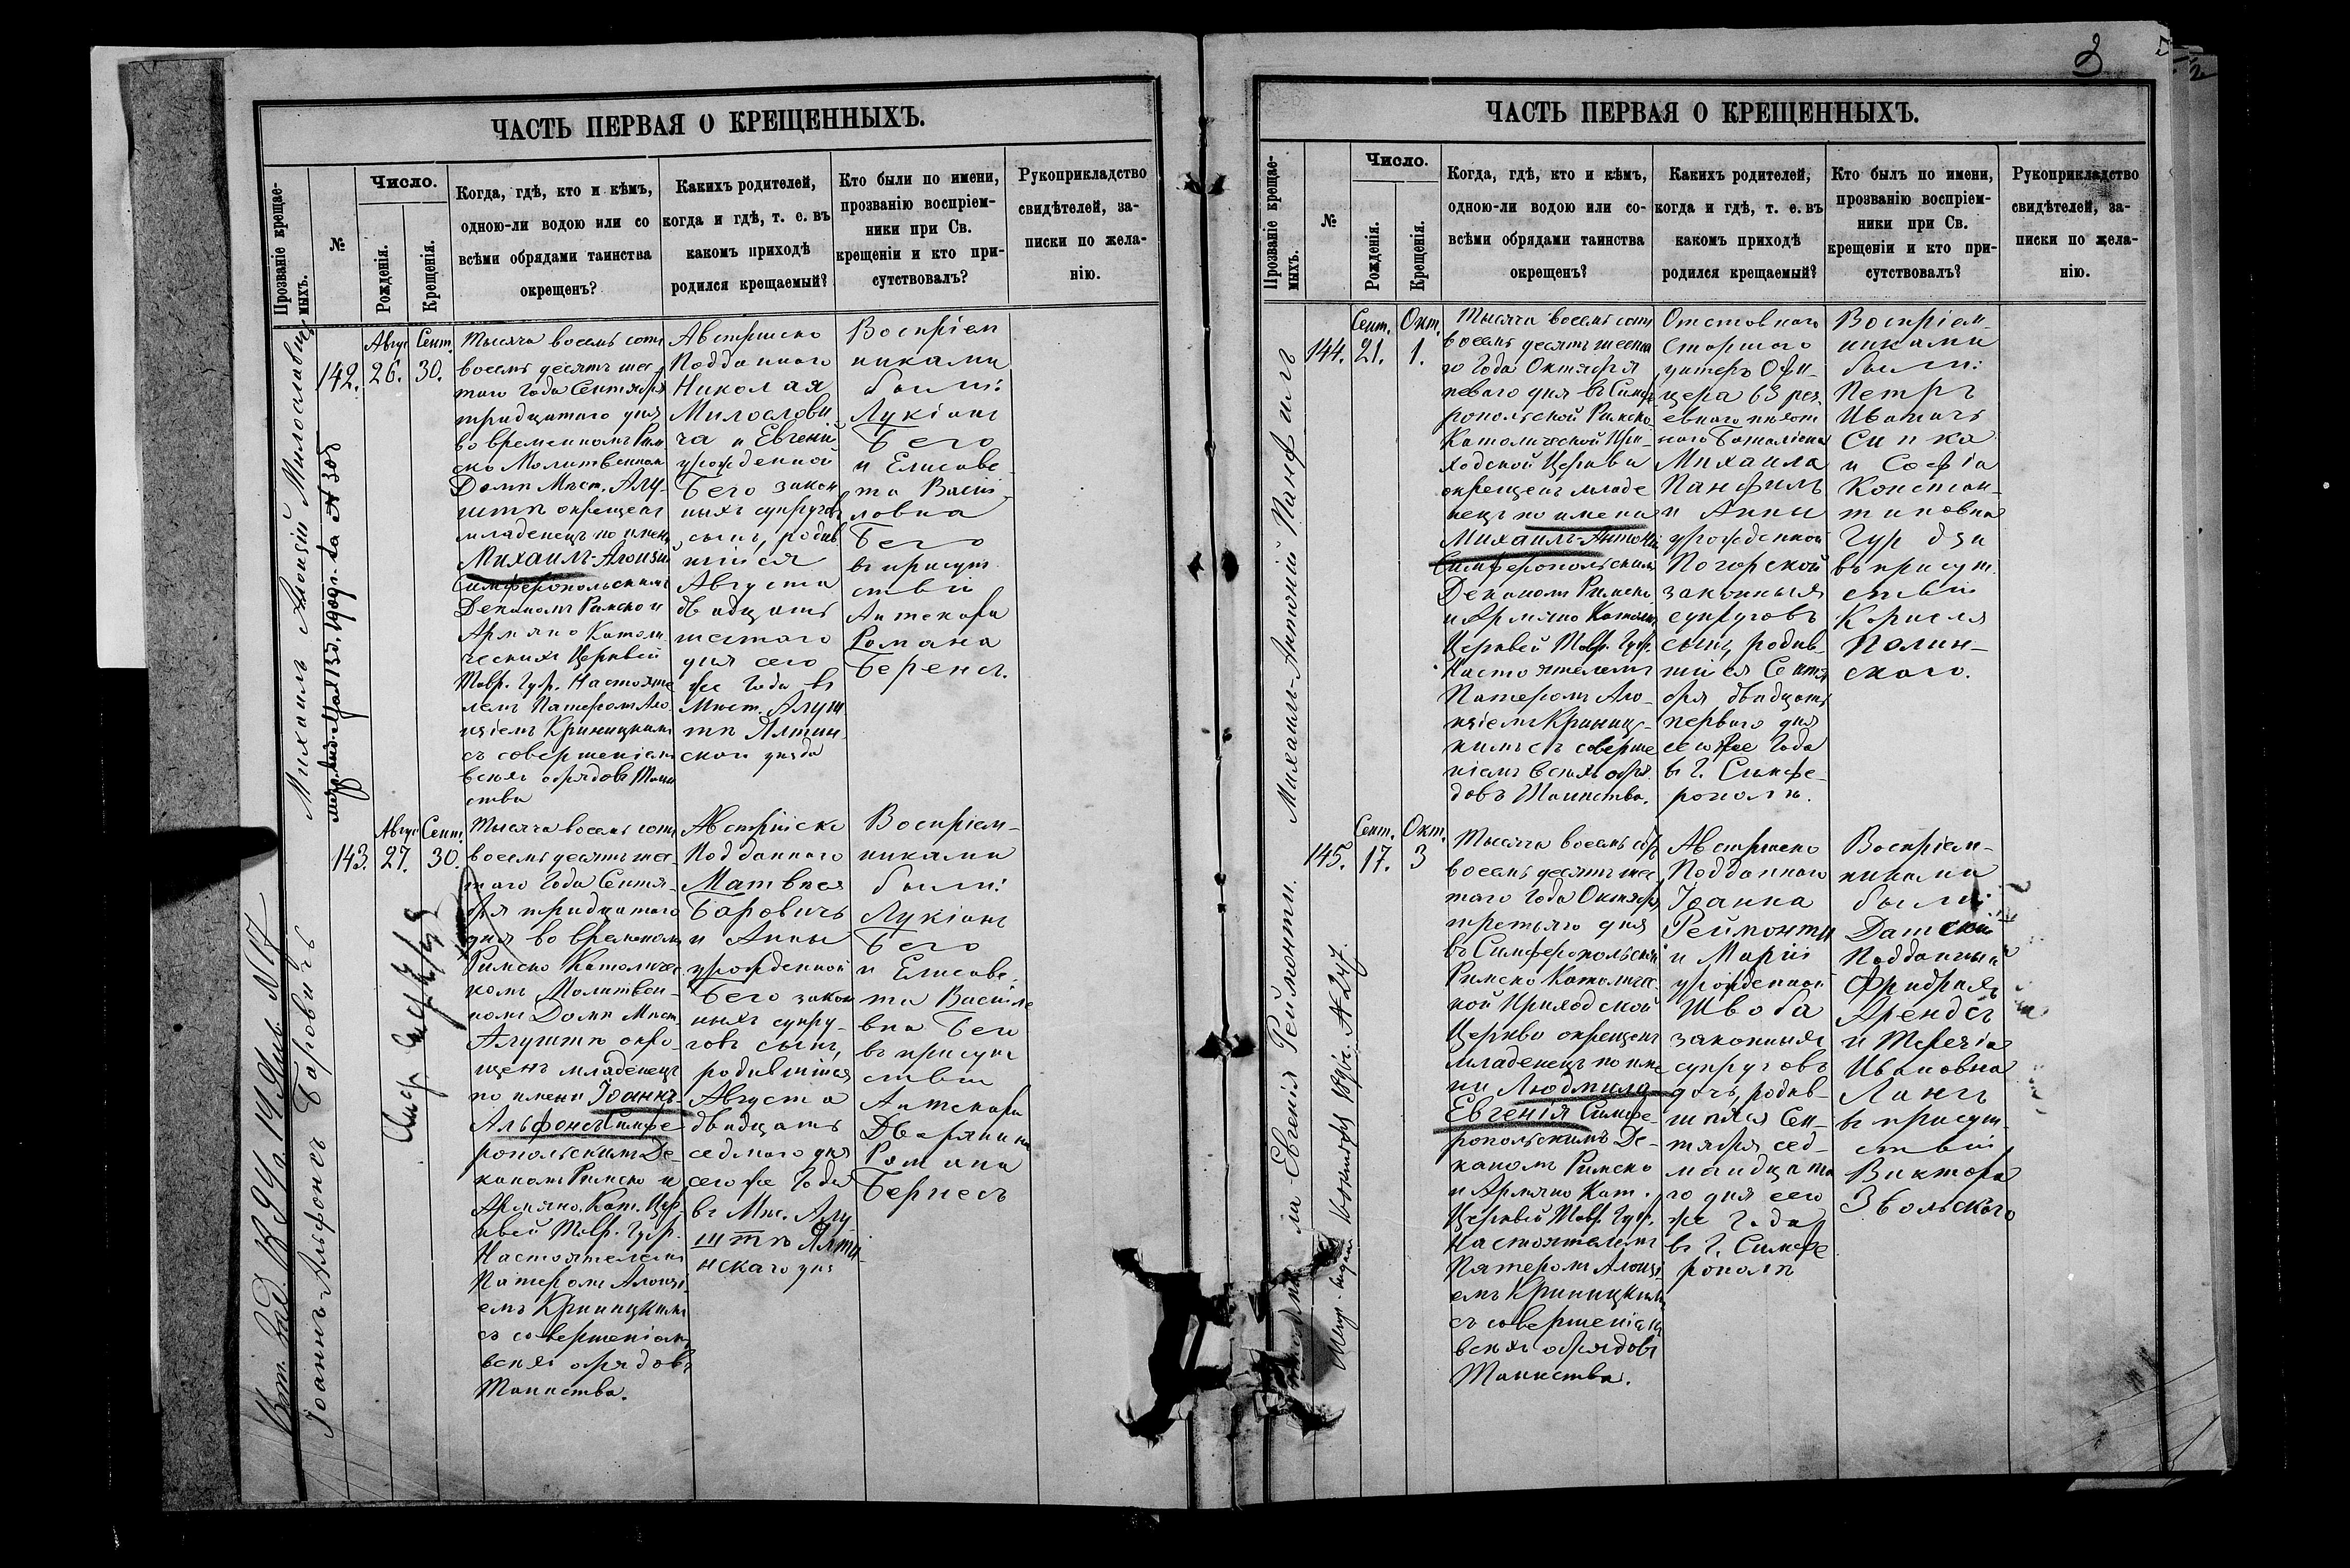 ЧАСТЬ ПЕРВАЯ О КРЕЩЕННЫХЪ.
Прозваніе крещае-
мыхъ.
№
Число.
Рожденія.
Крещенія.
Когда, гдѣ, кто и кѣмъ,
одною-ли водою или со
всѣми обрядами таинства
окрещенъ?
Какихъ родителей,
когда и гдѣ, т. е. въ
какомъ приходѣ
родился крещаемый?
Кто были по имени,
прозванію воспріем-
ники при Св.
крещеніи и кто при-
сутствовалъ?
Рукоприкладство
свидѣтелей, за-
писки по жела-
нію.
Михаилъ Алоизій Милославичъ
142.
Авгус
26.
Сент.
30.
Тысяча восемь сотъ
восемь десятъ шес
таго Года Сентября
тридцатаго дня
во временномъ Рим
ско Молитвенном
Домѣ Мѣст. Алу-
штѣ окрещенъ
младенецъ по имени
Михаилъ-Алоизій
Симферопольскимъ
Деканомъ Римско и
Армяно Катол
ческихъ Церквей
Тавр. Губ. Настояте
лемъ Патеромъ Ало
изіемъ Криницкимъ
съ совершеніемъ
всехъ обрядовъ Таин
ства
Австрійско
Подданнаго
Николая
Милослови
ча и Евгеніи
урожденной
Бего закон
ныхъ супруговъ
сынъ, родив
шійся
Августа
двадцать
шестаго
дня сего
же Года въ
Мѣст. Алуш
тѣ Ялтин
ской уѣзда
Воспріем
никами
были:
Лукіанъ
Бего
и Елисаве
та Васи
ловна
Бего
въ присут
ствіи
Аптекаря
Романа
Беренсъ.
Іоаннъ-Альфонсъ Баровичъ
143.
Авгус
27.
Сент.
30.
Тысяча восемь сотъ
восемь десятъ шес-
таго Года Сентя-
бря тридцатаго
дня во временномъ
Римско Католичес
комъ Молитвен-
номъ Домѣ Мѣст.
Алуштѣ окре-
щенъ младенецъ
по имени Іоаннъ-
Альфонсъ Симфе
ропольскимъ Де-
каномъ Римско и
Армяно. Кат. Цер
квей Тавр. Губ.
Настоятелемъ
Патеромъ Алоизі
емъ Криницкимъ
съ совершеніемъ
всехъ обрядовъ
Таинства.
Австрійско
Подданнаго
Матвѣя
Баровичъ
и Анны
урожденной
Бего закон
ныхъ супру-
говъ сынъ,
родившійся
Августа
двадцать
седмаго дня
сего же Года
въ Мѣс. Алу
штѣ Ялти
нскаго уѣз
Воспріем-
никами
были:
Лукіанъ
Бего
и Елисаве
та Василе
вна Бего
въ присут
ствіи
Аптекаря
Дворянина
Романа
Бернесъ
ЧАСТЬ ПЕРВАЯ О КРЕЩЕННЫХЪ.
Прозваніе крещае-
мыхъ.
№
Число.
Рожденія.
Крещенія.
Когда, гдѣ, кто и кѣмъ,
одною-ли водою или со-
всѣми обрядами таинства
окрещенъ?
Какихъ родителей,
когда и гдѣ, т. е. въ
какомъ приходѣ
родился крещаемый?
Кто былъ по имени,
прозванію воспріем-
ники при Св.
крещеніи и кто при-
сутствовалъ?
Рукоприкладство
свидѣтелей, за-
писки по жела-
нію.
Михаилъ-Антоній Панфилъ
144.
Сент.
21.
Окт.
1.
Тысяча восемь сотъ
восемь десятъ шеста
го Года Октября
перваго дня въ Симфе
ропольской Римско
Католической При-
ходской Церкви
окрещенъ младе
нецъ по имени
Михаилъ-Антоній
Симферопольскимъ
Деканомъ Римско
и Армяно Католи
Церквей Тавр. Губ.
Настоятелемъ
Патеромъ Ало-
изіемъ Криниц-
кимъ съ соверше
ніемъ всехъ обря
довъ Таинства.
Отставнаго
Старшаго
унтеръ Офи-
цера 63 рез.
евнаго пѣхот
наго Баталіона
Михаила
Панфилъ
и Анны
урожденной
Погорской
законныхъ
супруговъ
сынъ, родив-
шійся Сентя
бря двадцать
перваго дня
сего же Года
въ Г. Симфе-
рополѣ.
Воспріем-
никами
были:
Петръ
Ивановъ
Сипко
и Софія
Констан-
тиновна
Гурдзи
въ присут.
ствіи
Корнеля
Полин-
скаго.
145.
Сент.
17.
Окт.
3
Тысяча восемь сотъ
восемь десятъ шес
таго Года Октября
третьяго дня
въ Симферопольской
Римско Католичес
кой Приходской
Церкви окрещенъ
младенецъ по име
ни Людмила
Евгенія Симфе-
ропольскимъ Де-
каномъ Римско
и Армяно Кат.
Церквей Тавр. Губ.
Настоятелемъ
Патеромъ Алоизі
емъ Криницкимъ
съ совершеніемъ
всехъ обрядовъ
Таинства.
Австрійско
Подданнаго
Іоанна
Реймонти
и Маріи
урожденной
Швоба
законныхъ
супруговъ
дочь, родив-
шаяся Сен-
тября сед-
манцата
го дня сего
же Года
въ Г. Симфе
рополѣ
Воспріем-
никами
были:
Датскій
Подданный
Фридрихъ
Арендсъ
и Терезія
Ивановна
Лангъ
въ присут-
ствіи
Виктора
Звольскаго